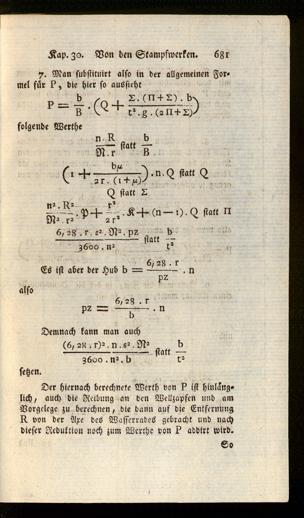 Kap. 30. Von den Stampfwerken. 681
7. Man substituirt also in der allgemeinen For-
mel für P, die hier so aussieht
P = b/B . (Q + Σ. (Π + Σ) . b / t². g . (2Π + Σ))
folgende Werthe
n. R / ℜ. r statt b / B
(1 + bμ / 2r . (1 + μ)) . n. Q statt Q
Q statt Σ
n². R² / ℜ². r² . p + r² / 2r² . K + (n — 1). Q statt Π
6,28 . r . s². ℜ². pz / 3600. n² statt b / t²
Es ist aber der Hub b = 6,28 . r / pz . n
also
pz = 6,28 . r / b . n
Demnach kann man auch
(6,28 . r)². n. s². ℜ² / 3600 . n². b statt b / t²
setzen.
Der hiernach berechnete Werth von P ist hinläng-
lich, auch die Reibung an den Wellzapfen und am
Vorgelege zu berechnen, die dann auf die Entfernung
R von der Axe des Wasserrades gebracht und nach
dieser Reduktion noch zum Werthe von P addirt wird.
So